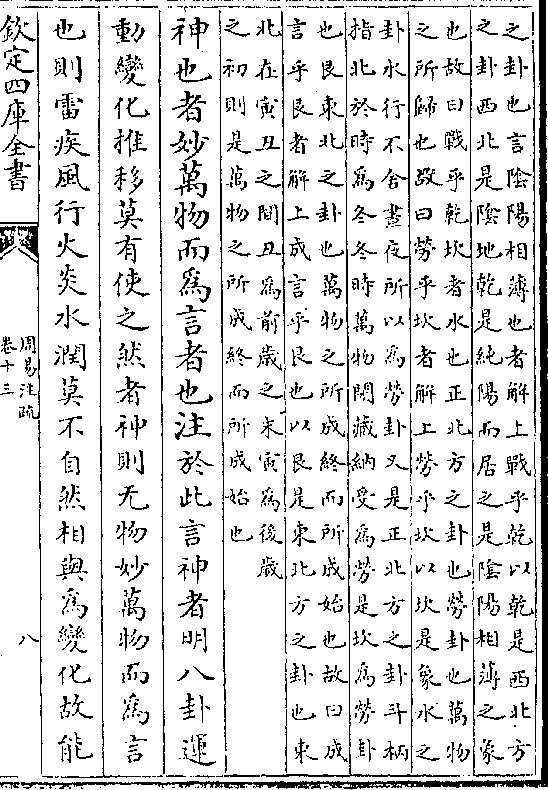 之卦也言陰陽相薄也者解上戰乎乾以乾是西北方
之卦西北是陰地乾是純陽而居之是陰陽相薄之象
也故曰戰乎乾坎者水也正北方之卦也勞卦也萬物
之所歸也故曰勞乎坎者解上勞乎坎以坎是象水之
卦水行不舍晝夜所以為勞卦又是正北方之卦斗柄
指北於時為冬冬時萬物閉藏納受為勞是坎為勞卦
也艮東北之卦也萬物之所成終而所成始也故曰成
言乎艮者解上成言乎艮也以艮是東北方之卦也東
北在寅丑之間丑為前歲之末寅為後歲
之初則是萬物之所成終而所成始也
神也者妙萬物而爲言者也注於此言神者明八卦運
動變化推移莫有使之然者神則无物妙萬物而爲言
也則雷疾風行火炎水潤莫不自然相與爲變化故能
欽定四庫全書
周易注疏
卷十三
八